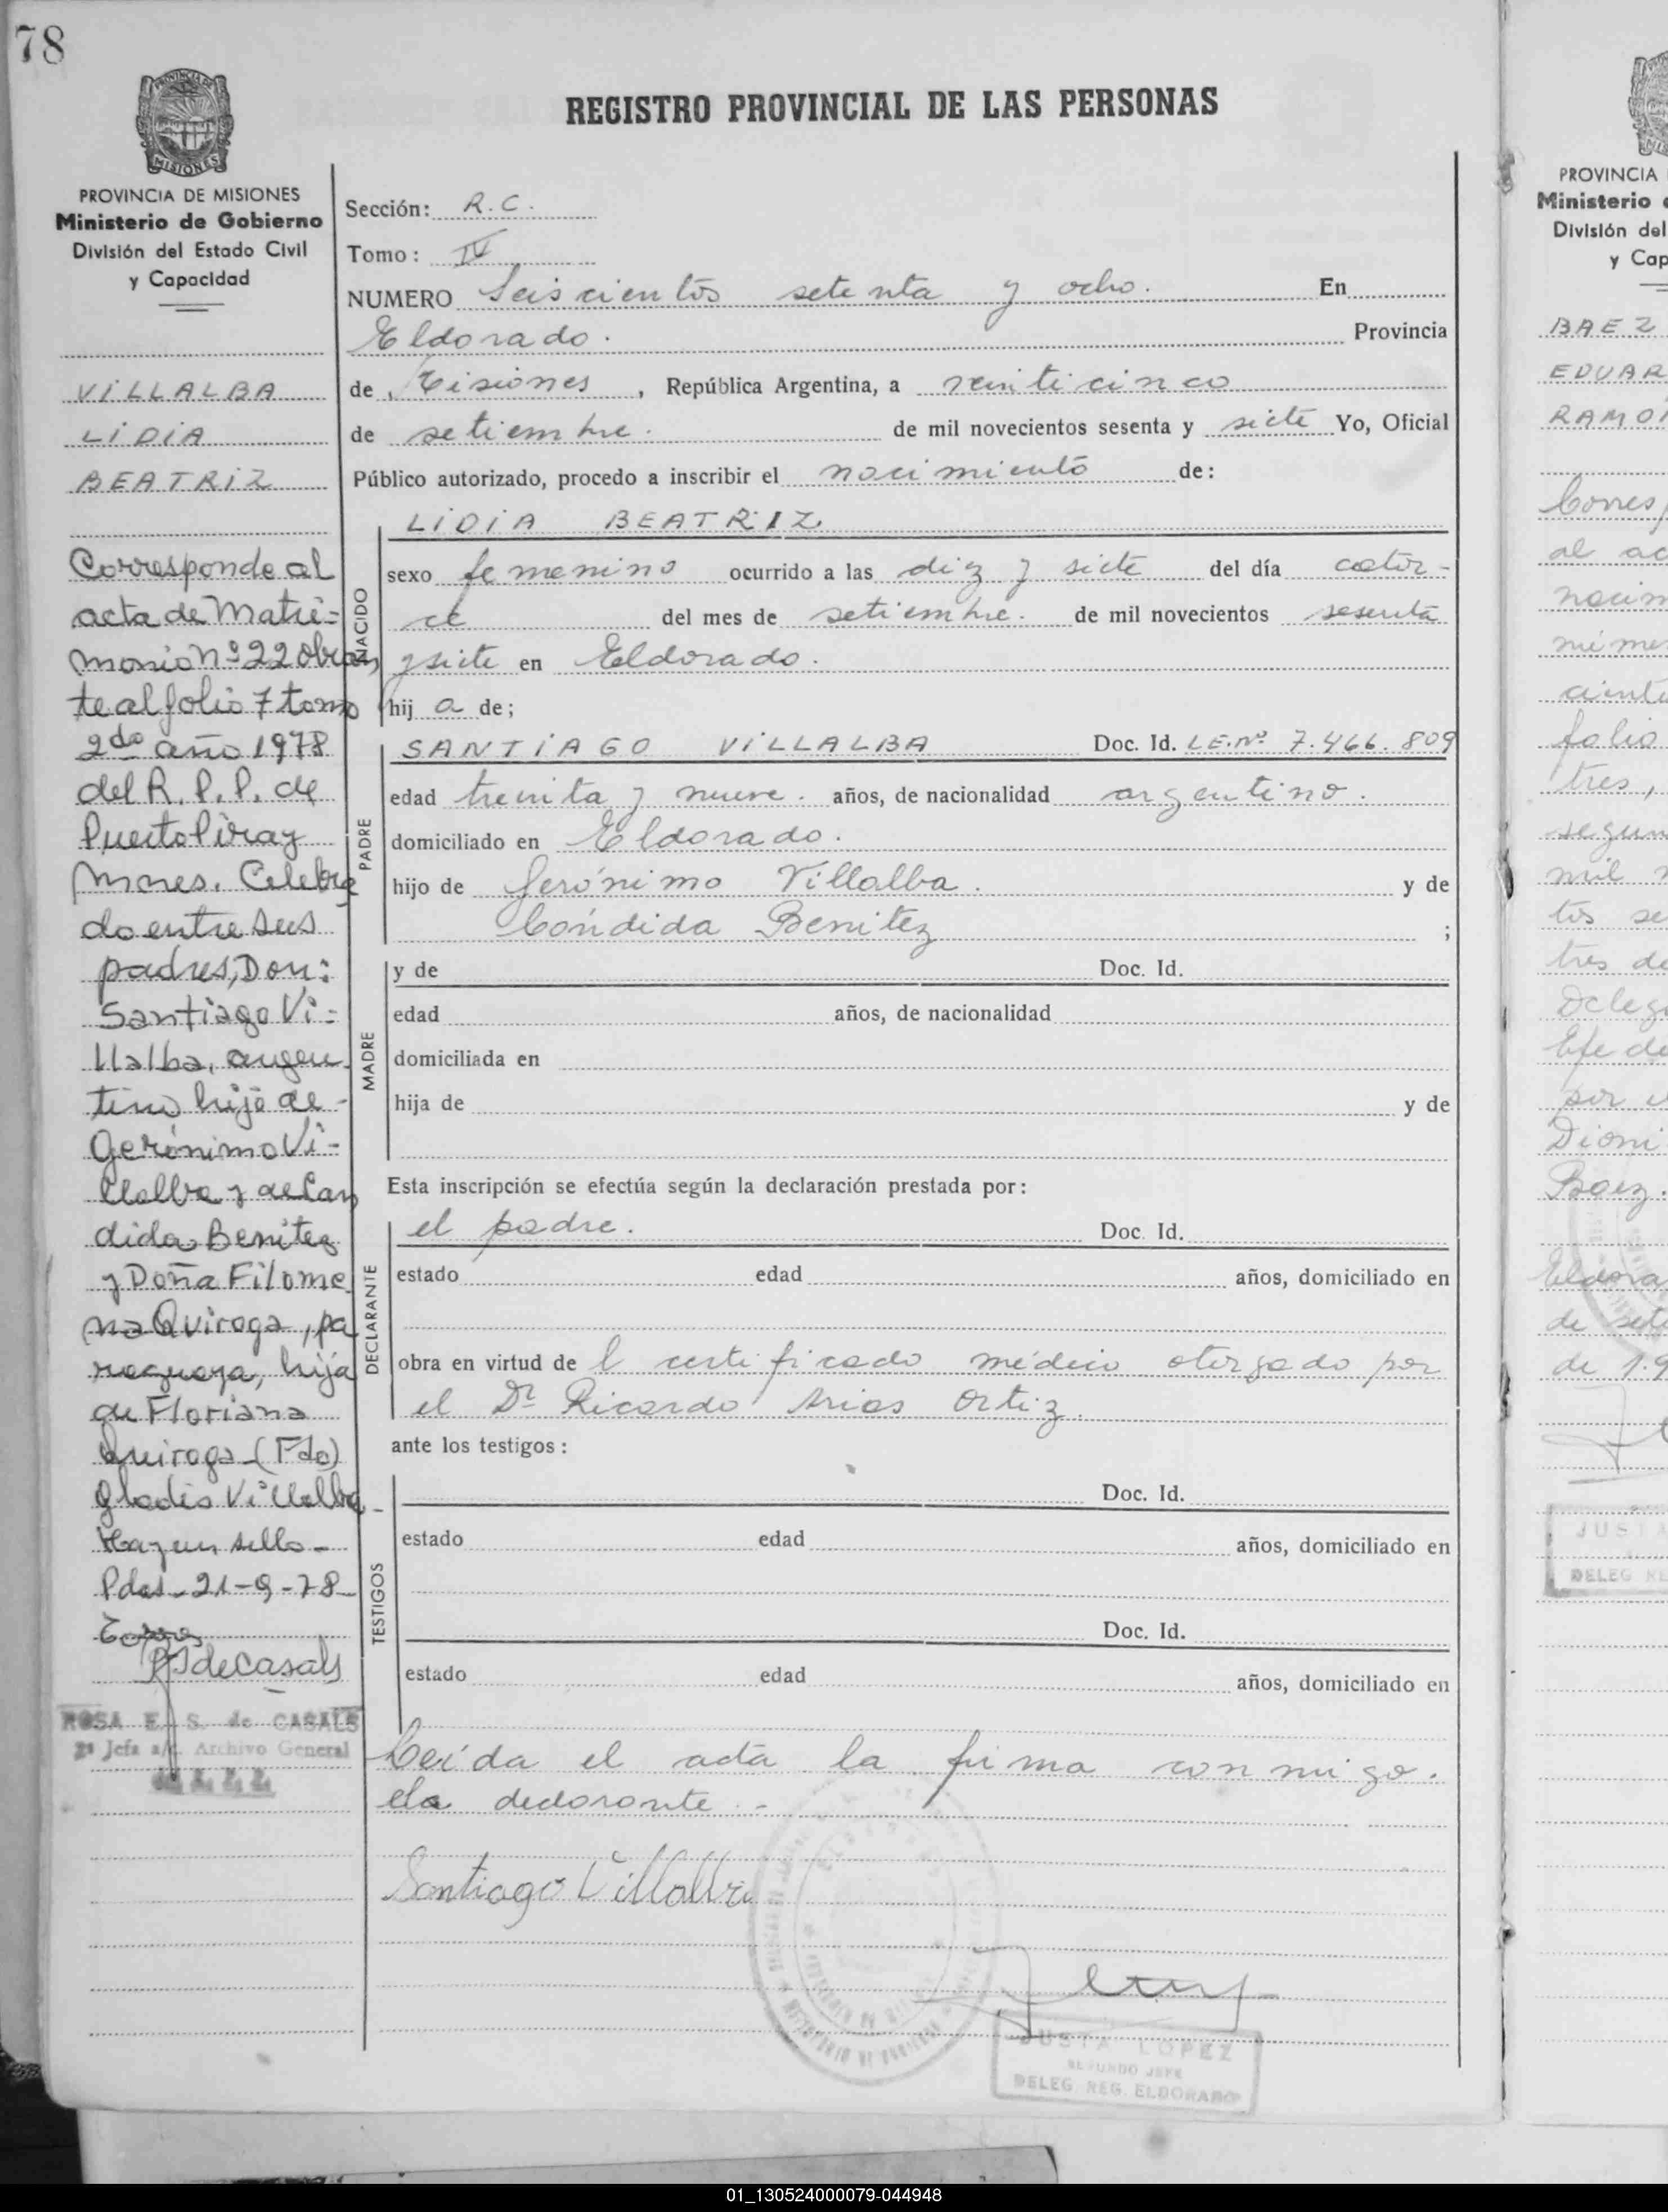 78
REGISTRO PROVINCIAL DE LAS PERSONAS
PROVINCIA DE MISIONES
Ministerio de Gobierno
División del Estado Civil
y Capacidad
VILLALBA
LIDIA
BEATRIZ
Corresponde al
acta de Matri=
monio Nº 22 obran
te al folio 7 tomo
2do año 1978
del R. P. P. de
Puerto Piray
Mnes. Celebra
do entre sus
padres, Don:
Santiago Vi=
llalba, argen
tino hijo de -
Gerónimo Vi=
llalba y de Can
dida Benitez
y Doña Filome
na Quiroga, pa
raguaya, hija
de Floriana
Quiroga - (Fdo)
Gladis Villalba -
Hay un sello -
Pdas - 21-9-78
de Casals
ROSA E. S. de CASALS
2ª Jefa a/c. Archivo General
Sección: R.C.
Tomo: IV
NUMERO Seiscientos setenta y ocho. En
Eldorado. Provincia
de Misiones, República Argentina, a veinticinco
de setiembre. de mil novecientos sesenta y siete Yo, Oficial
Público autorizado, procedo a inscribir el nacimiento de:
NACIDO
LIDIA BEATRIZ
sexo femenino ocurrido a las diez y siete del día cator-
ce del mes de setiembre. de mil novecientos sesenta
y siete en Eldorado.
hij a de;
PADRE
SANTIAGO VILLALBA Doc. Id. LE.Nº 7.466.809
edad treinta y nueve. años, de nacionalidad argentino.
domiciliado en Eldorado.
hijo de Gerónimo Villalba. y de
Cándida Benitez ;
MADRE
y de Doc. Id.
edad años, de nacionalidad
domiciliada en
hija de y de
Esta inscripción se efectúa según la declaración prestada por:
DECLARANTE
el padre. Doc. Id.
estado edad años, domiciliado en
obra en virtud de l certificado médico otorgado por
el Dr Ricardo Arias Ortiz.
ante los testigos:
TESTIGOS
Doc. Id.
estado edad años, domiciliado en
Doc. Id.
estado edad años, domiciliado en
Leída el acta la firma conmigo.
el declarante.-
Santiago Villalba
JUSTA LOPEZ
SEGUNDO JEFE
DELEG. REG. ELDORADO
PROVINCIA
Ministerio
División del
y Cap
BAEZ
EDUAR
RAMÓ
Corres
al ac
nacim
folio
tres,
segun
mil
tos se
tres de
Deleg
por
Dioni
Baez.
Eldora
de seti
de 1.9
JUSTA
DELEG RE
01_130524000079-044948